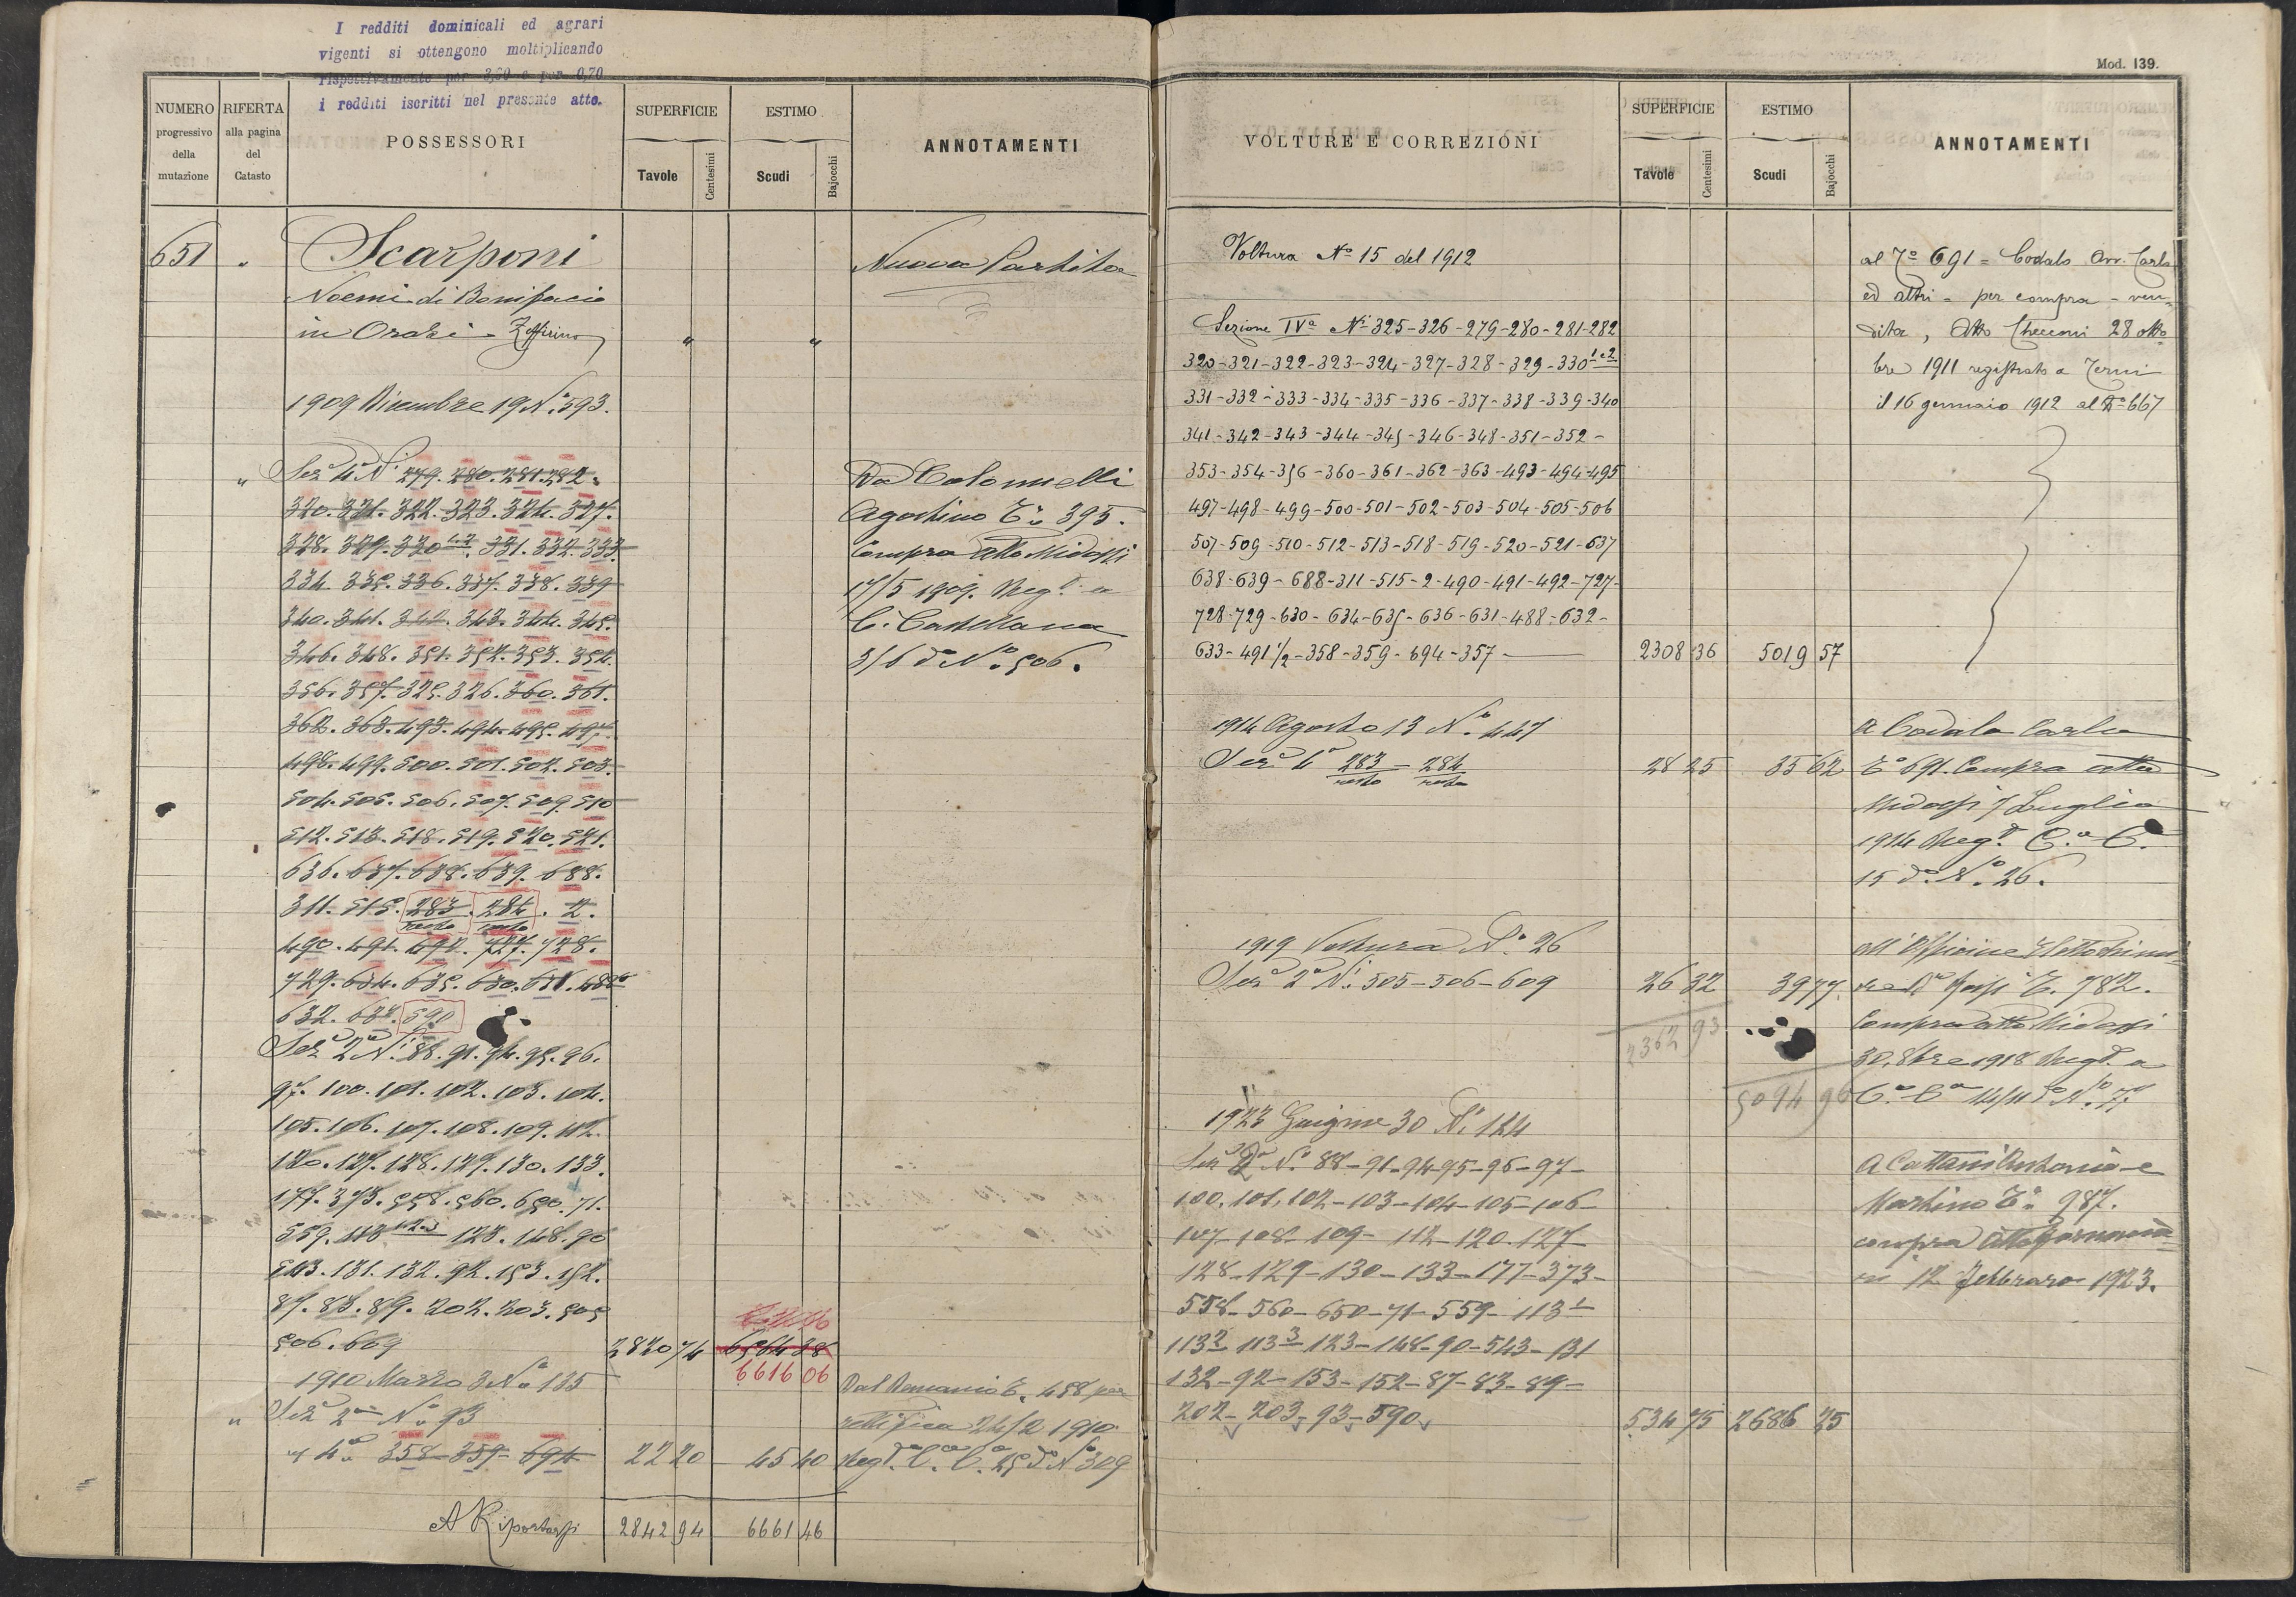 I redditi dominicali ed agrari
vigenti si ottengono moltiplicando
rispettivamente per 3,60 e per 0,70
i redditi iscritti nel presente atto.
NUMERO
progressivo
della
mutazione
RIFERTA
alla pagina
del
Catasto
POSSESSORI
SUPERFICIE
Tavole
Centesimi
ESTIMO
Scudi
Bajocchi
ANNOTAMENTI
651 "
Scarponi
Noemi di Bonifacio
in Orazi - Zeffirino
" "
Nuova Partita
1909 Dicembre 19 N.° 593.
" Sez.e 4a N.i 279. 280. 281. 282.
320. 321. 322. 323. 324. 327.
328. 329. 330 1.2. 331. 332. 333.
334. 335. 336. 337. 338. 339
340. 341. 342. 343. 344. 345.
346. 348. 351. 352. 353. 354.
356. 357. 325. 326. 360. 361.
362. 363. 493. 494. 495. 497.
498. 499. 500. 501. 502. 503.
504. 505. 506. 507. 509. 510
512. 513. 518. 519. 520. 521.
636. 637. 638. 639. 688.
311. 515. 283. 284. 2.
resto resto
490. 491. 492. 727. 728.
729. 634. 635. 630. 631. 488
632. 633. 590
Sez.e 2a N.i 88. 91. 94. 95. 96.
97. 100. 101. 102. 103. 104.
105. 106. 107. 108. 109. 112.
120. 127. 128. 129. 130. 133.
177. 373. 558. 560. 650. 71.
559. 113 1.2.3 123. 148. 90
543. 131. 132. 92. 153. 152.
87. 83. 89. 202. 203. 505
506. 609 2820 74
6616 06
Da Colonnelli
Agostino T.° 395.
Compra atto Midossi
17/5 1909. Reg.to a
C. Castellana
3/6 d.o N.° 506.
1910 Marzo 3 N.° 135
" Sez.e 2a N.° 93
" 4a 358 - 359 - 694 22 20 45 40
Dal Demanio T. 458 per
rettifica 24/2 1910
Reg.to C.a C.a 25 d.o N.° 309
A Riportarsi 2842 94 6661 46
Mod. 139.
VOLTURE E CORREZIONI
SUPERFICIE
Tavole
Centesimi
ESTIMO
Scudi
Bajocchi
ANNOTAMENTI
Voltura N.° 15 del 1912
Sezione IVa N.i 325-326-279-280-281-282
320-321-322-323-324-327-328-329-330 1e2
331-332-333-334-335-336-337-338-339-340
341-342-343-344-345-346-348-351-352-
353-354-356-360-361-362-363-493-494-495
497-498-499-500-501-502-503-504-505-506
507-509-510-512-513-518-519-520-521-637
638-639-688-311-515-2-490-491-492-727-
728-729-630-634-635-636-631-488-632-
633-491 1/2-358-359-694-357- 2308 36 5019 57
al T.° 691 = Codalo Avv. Carlo
ed altri - per compra-ven-
dita, Atto Checconi 28 otto-
bre 1911 registrato a Terni
il 16 gennaio 1912 al N.° 667
1914 Agosto 13 N.° 447
Sez.e 4a 283 - 284 28 25 35 62
resto resto
A Codalo Carlo
T.° 691. Compra atto
Midossi 7 Luglio
1914 Reg.to C.a C.
15 d.o N.° 26.
1919 Voltura N.° 26
Sez.e 2a N.i 505-506-609 26 32 39 77
2362 93
5094 96
T. 782.
Compra atto Midossi
30. 8bre 1918 Reg.to a
C.a C.a 14/11 d.o N.° 77
1923 Giugno 30 N.° 124
Sez.e 2a N.i 88-91-94-95-96-97-
100. 101. 102-103-104-105-106-
107-108-109-112-120-127-
128-129-130-133-177-373-
558-560-650-71-559-113 1
113 2 113 3-123-148-90-543-131
132-92-153-152-87-83-89-
202-203-93-590 534 75 2686 25
A Cattani Antonio e
Martino T.° 987.
compra Atto
12 Febbraro 1923.